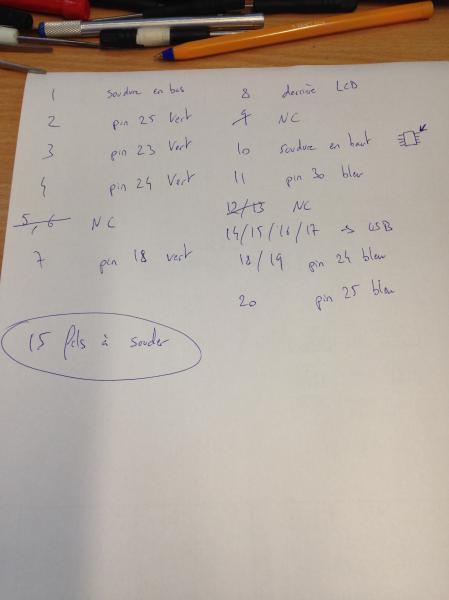 1 soudure en bas
2 pin 25 Vert
3 pin 23 Vert
4 pin 24 Vert
5, 6 NC
7 pin 18 vert
8 derrière LCD
9 NC
10 soudure en haut
11 pin 30 bleu
12/13 NC
14/15/16/17 → USB
18/19 pin 24 bleu
20 pin 25 bleu
15 fils à souder